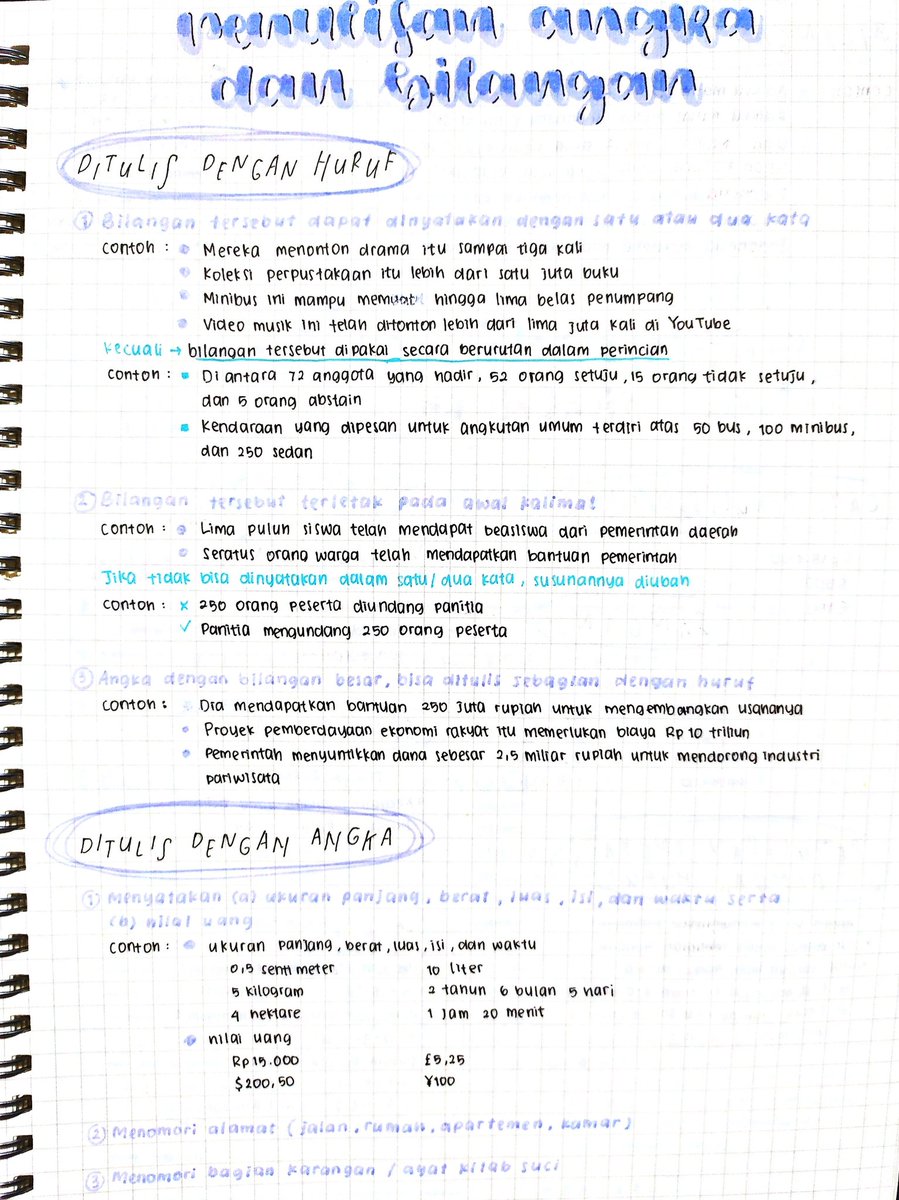 penulisan angka
dan bilangan
DITULIS DENGAN HURUF
① Bilangan tersebut dapat dinyatakan dengan satu atau dua kata
contoh : • Mereka menonton drama itu sampai tiga kali
• Koleksi perpustakaan itu lebih dari satu juta buku
• Minibus ini mampu memuat hingga lima belas penumpang
• Video musik ini telah ditonton lebih dari lima juta kali di YouTube
kecuali → bilangan tersebut dipakai secara berurutan dalam perincian
contoh : • Di antara 72 anggota yang hadir, 52 orang setuju, 15 orang tidak setuju,
dan 5 orang abstain
• Kendaraan yang dipesan untuk angkutan umum terdiri atas 50 bus, 100 minibus,
dan 250 sedan
② Bilangan tersebut terletak pada awal kalimat
contoh : • Lima puluh siswa telah mendapat beasiswa dari pemerintah daerah
• Seratus orang warga telah mendapatkan bantuan pemerintah
Jika tidak bisa dinyatakan dalam satu/dua kata, susunannya diubah
contoh : × 250 orang peserta diundang panitia
✓ Panitia mengundang 250 orang peserta
③ Angka dengan bilangan besar, bisa ditulis sebagian dengan huruf
contoh : • Dia mendapatkan bantuan 250 juta rupiah untuk mengembangkan usahanya
• Proyek pemberdayaan ekonomi rakyat itu memerlukan biaya Rp 10 triliun
• Pemerintah menyuntikkan dana sebesar 2,5 miliar rupiah untuk mendorong industri
pariwisata
DITULIS DENGAN ANGKA
① Menyatakan (a) ukuran panjang, berat, luas, isi, dan waktu serta
(b) nilai uang
contoh : • ukuran panjang, berat, luas, isi, dan waktu
0,5 senti meter 10 liter
5 kilogram 2 tahun 6 bulan 5 hari
4 hektare 1 jam 20 menit
• nilai uang
Rp 15.000 £5,25
$200,50 ¥100
② Menomori alamat (jalan, rumah, apartemen, kamar)
③ Menomori bagian karangan / ayat kitab suci